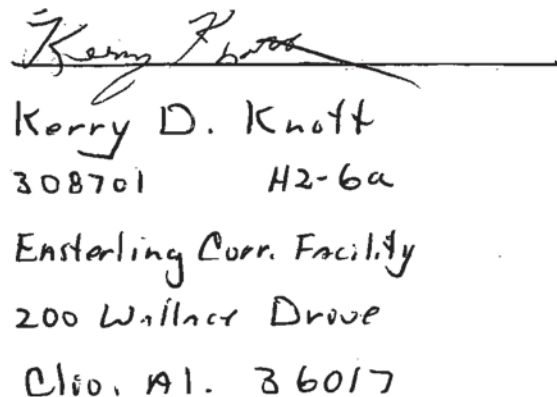 Kerry Knott
Kerry D. Knott
308701 H2-6a
Easterling Corr. Facility
200 Wallace Drove
Clio, Al. 36017